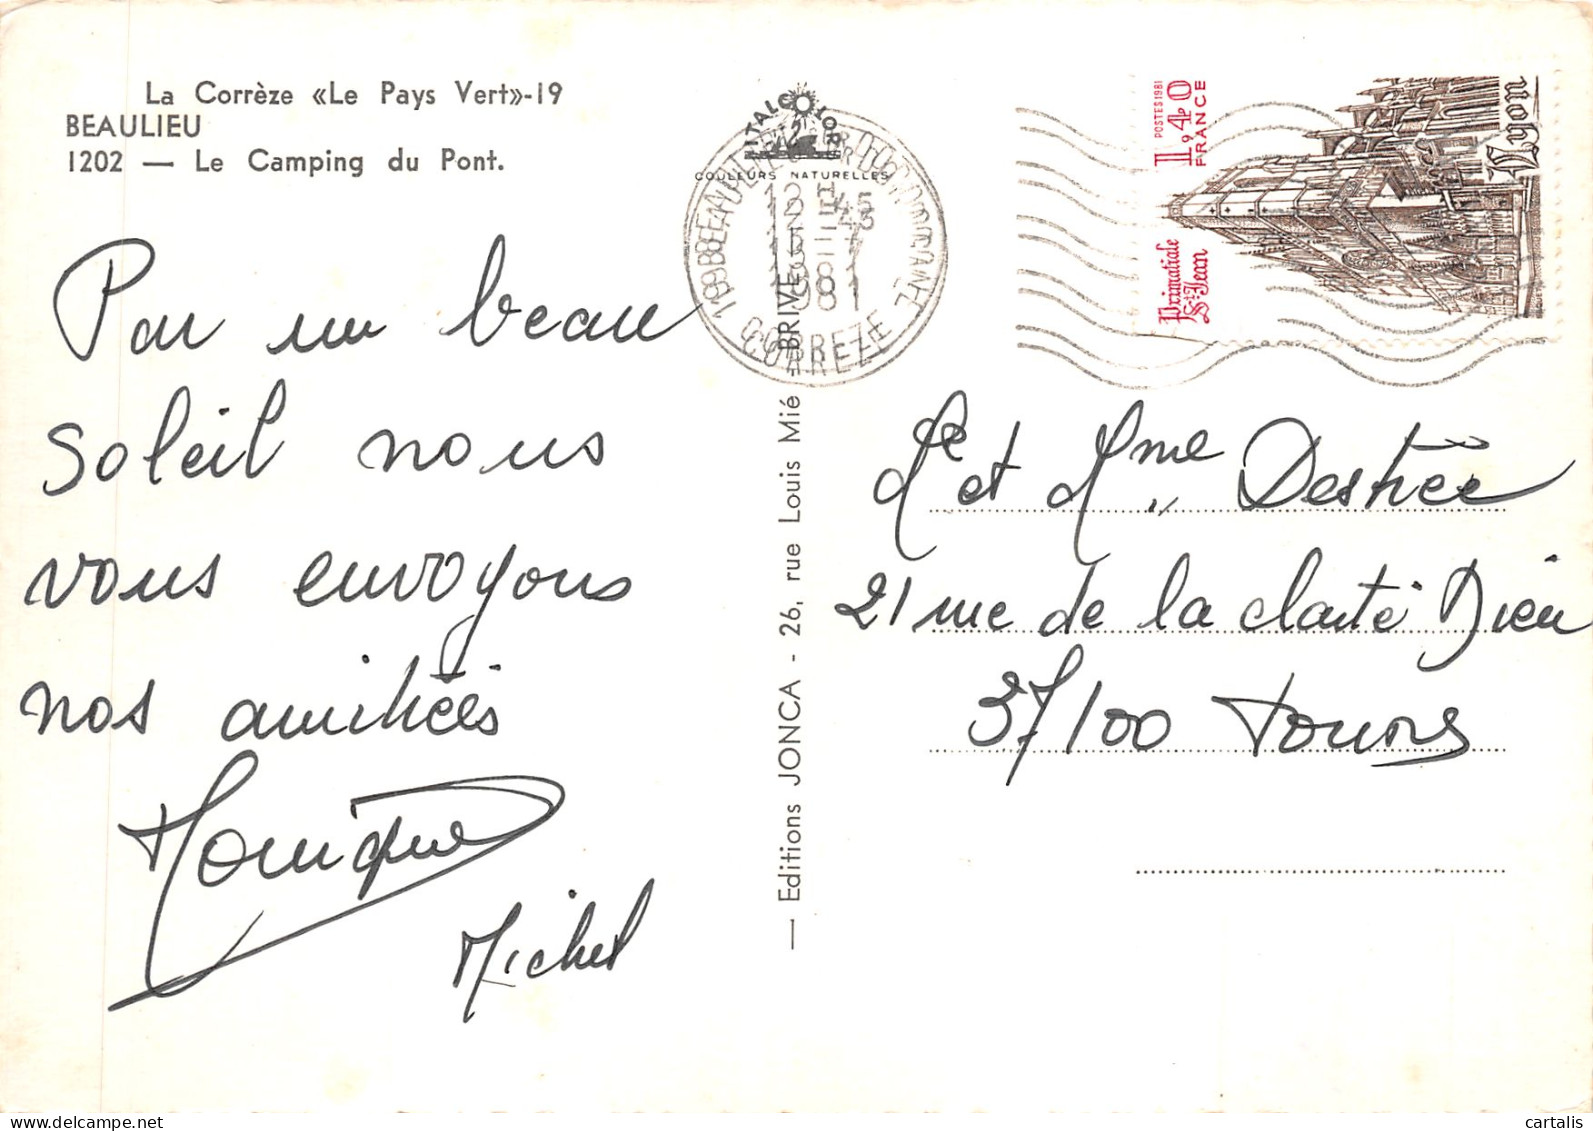 La Corrèze «Le Pays Vert»-19
BEAULIEU
1202 — Le Camping du Pont.
Par un beau
soleil nous
vous envoyons
nos amitiées
Monique
Michel
ITALCOLOR
COULEURS NATURELLES
CORREZE
— Editions JONCA - 26, rue Louis Mié - BRIVE
POSTES 1981
1,40
FRANCE
Primatiale
St Jean
Lyon
et Mme Destrée
21 rue de la clarté Dieu
37100 Tours
cartalis
www.delcampe.net